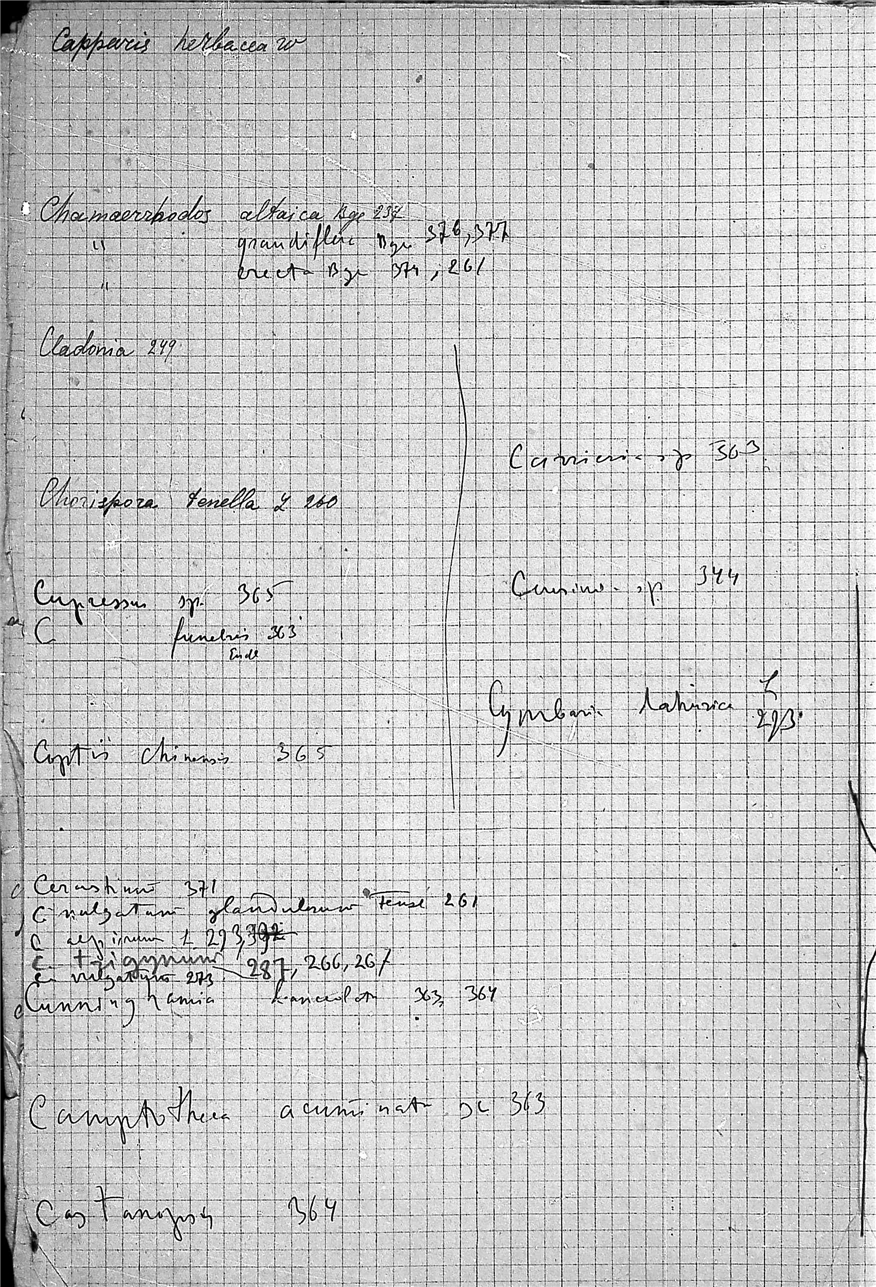 Capparis herbacea W
Chamaerrhodos altaica Bge 237
" grandiflora Bge 376, 377
" erecta Bge 374, 261
Cladonia 249
Chorispora tenella L 260
Cupressus sp. 365
C funebris 363
Endl
Coptis chinensis 365
Carrieria sp 363
sp 344
Cymbaria dahurica L
293
Cerastium 371
C vulgatum glandulosum 261
C alpinum L 293, 392
C. trigynum 287, 266, 267
C. vulgatum 273
Cunninghamia lanceolata 363, 364
Camptotheca acuminata 363
Castanopsis 364